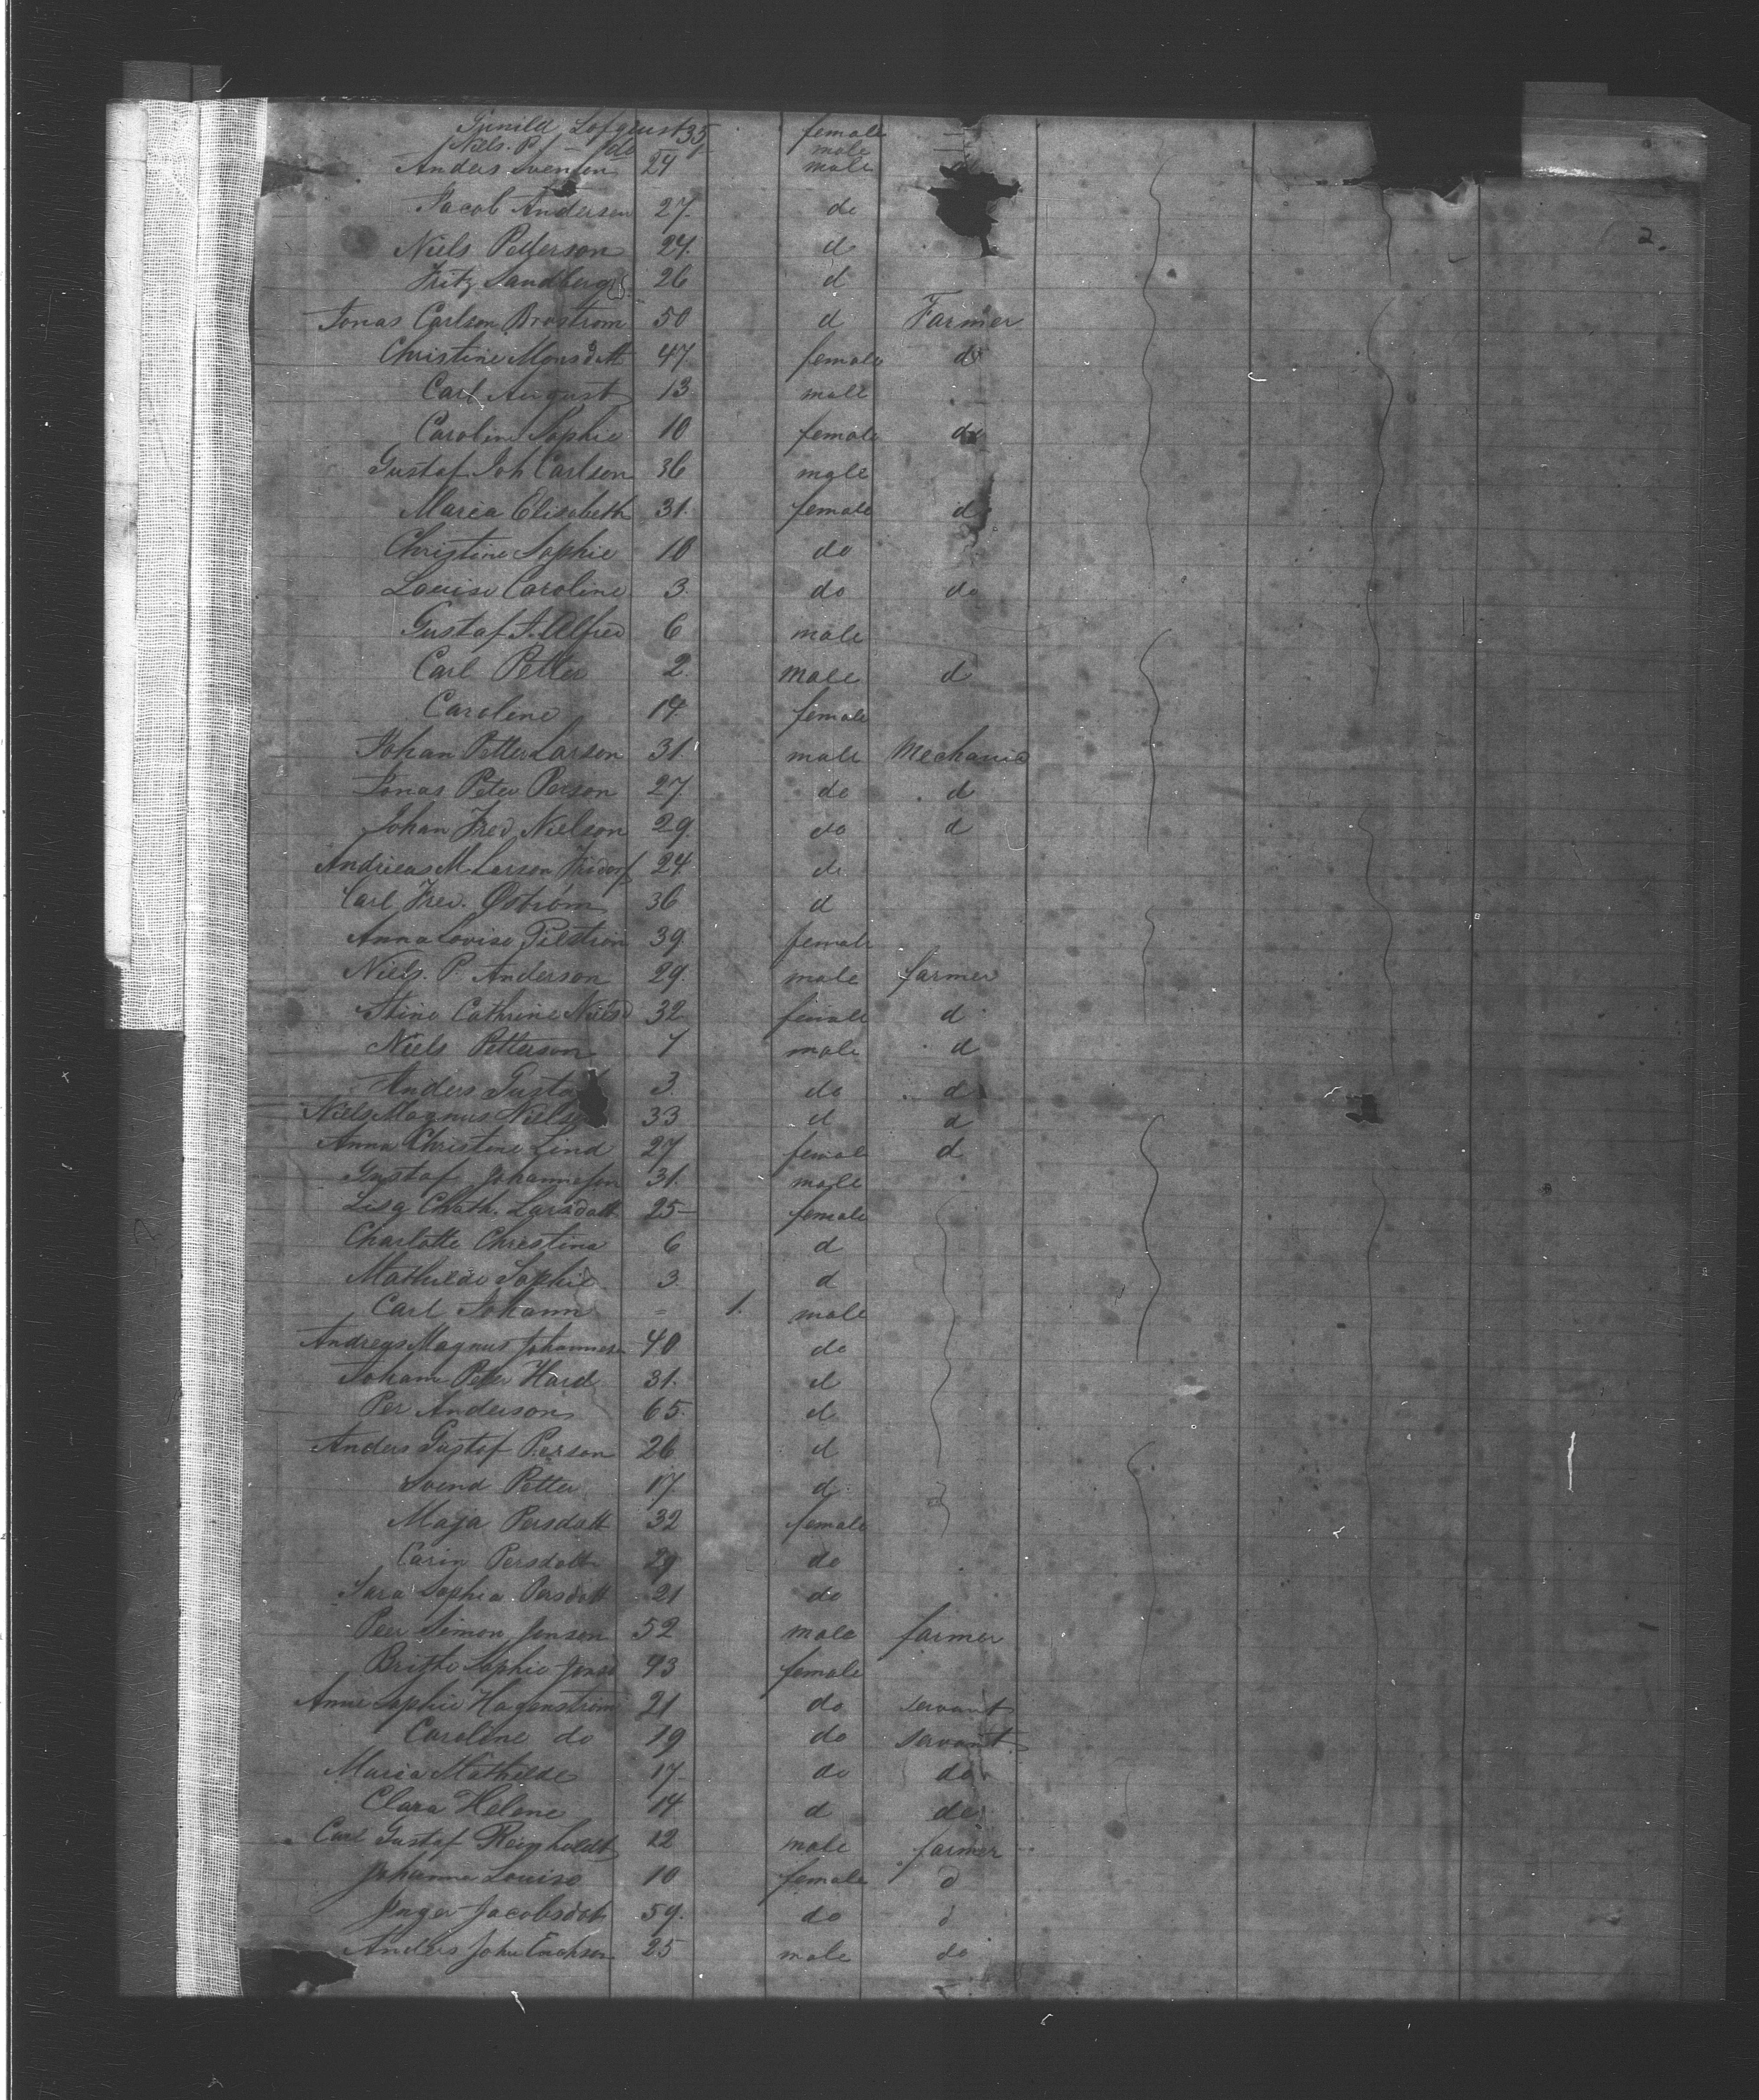 Gunild Lofquist 35 female
Niels. P. do male
Anders Svenson 24 male
Jacob Anderson 27. do
2.
Niels Petterson 24. d
Fritz Sandberg 26 d
Jonas Carlson Brostrom 50 d Farmer
Christine Monsdatt 47 female do
Carl August 13 male
Caroline Sophie 10 female do
Gustaf Joh Carlson 36 male
Maria Elisabeth 31. female d
Christine Sophie 10 do
Louise Caroline 3. do do
Gustaf J. Alfred 6 male
Carl Petter 2. male d
Caroline 14 female
Johan Petter Larson 31 male Mechanic
Jonas Peter Person 27. do d
Johan Fred Nielson 29. do d
Andreas M Larson 24. do
Carl Fred. Öström 36 d
Anna Lovise 39. female
Niels. P. Anderson 29. male farmer
Stine Cathrine Nielsd 32 female d
Niels Petterson 7 male d
Anders Gusta 3. do d
Niels Magnus Niels 33 d d
Anna Christine Lind 27 female d
Gustaf Johanneson 31. male
Lisa Chath. Larsdatt 25 female
Charlotte Christina 6 d
Mathilde Sophie 3. d
Carl Johann = 1. male
Andreas Magnus Johannesen 40 do
Johann Peter Hard 31. d
Per Anderson 65. d
Anders Gustaf Person 26 d
Svend Petter 17. d
Maja Persdatt 32 female
Carin Persdatt 29 do
Sara Sophia Persdatt 21 do
Peer Simon Jonson 52 male farmer
Britte Sophie Jonsd 43 female
Anne Sophie Hagenstrom 21 do servant
Caroline do 19 do servant
Maria Mathilde 17 do do
Clara Helene 14 d do
Carl Gustaf Reinholdt 12 male farmer
Johanne Louise 10 female d
Inger Jacobsdat 59. do d
Anders John Erickson 25 male do